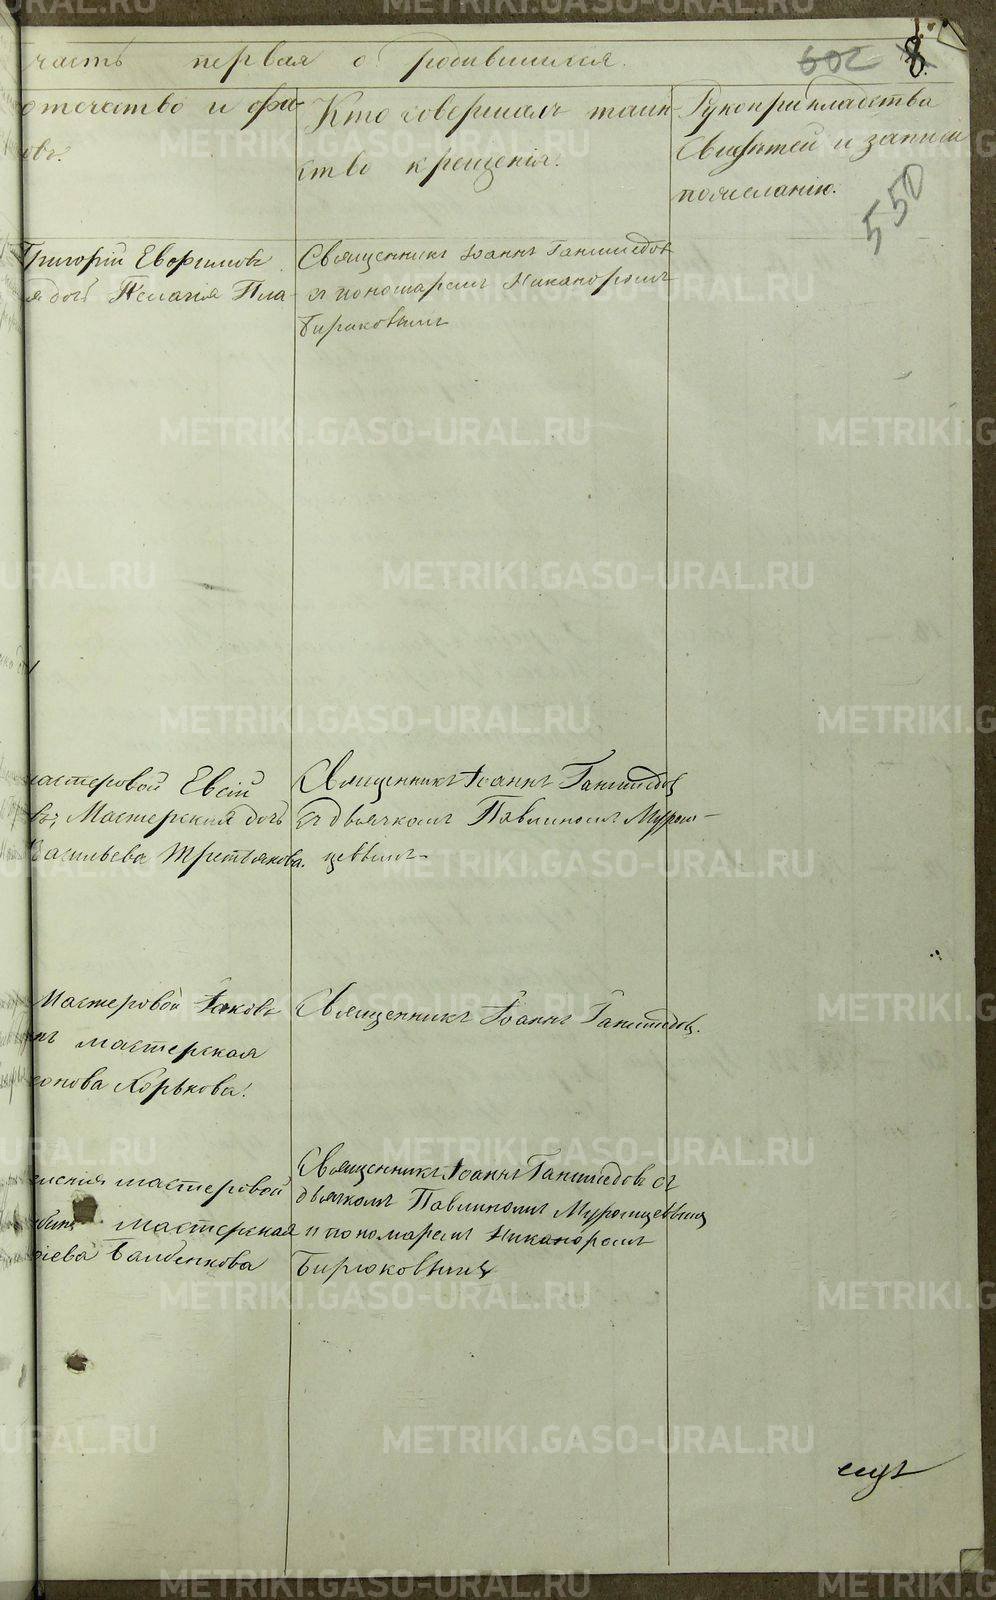 часть первая о родившихся.
602
8.
отечество и фа-
овъ.
Кто совершалъ таин-
ство крещенія.
Рукоприкладства
Свидѣтелей и записи
по желанію.
550
Григорій Евфимовъ
я дочь Пелагія Пла-
Священникъ Іоаннъ Ганимедовъ
съ пономаремъ Никаноромъ
Бирюковымъ
мастеровой Евсій
въ, Мастерская дочь
Васильева Третьякова.
Священникъ Іоаннъ Ганимедовъ
съ дьячкомъ Павлиномъ Муром-
цевымъ
Мастеровой Іаковъ
нъ мастерская
сонова Хорькова.
Священникъ Іоаннъ Ганимедовъ.
мастеровой
мастерская
Священникъ Іоаннъ Ганимедовъ съ
дьячкомъ Павлиномъ Муромцевымъ
и пономаремъ Никаноромъ
Бирюковымъ
METRIKI.GASO-URAL.RU